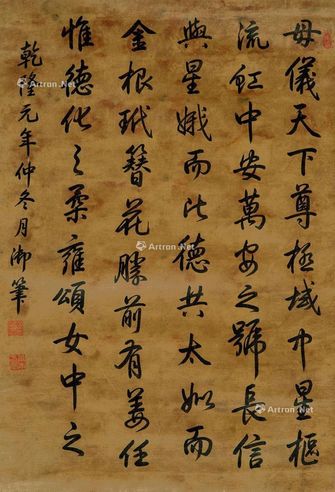 母儀天下尊極域中星樞
流虹中安萬安之號長信
與星娥而比德共太姒而
金根玳簪花勝前有姜任
惟德化之柔雍頌女中之
乾隆元年仲冬月御筆
Artron.Net
Artron.Net
Artron.Net
Artron.Net